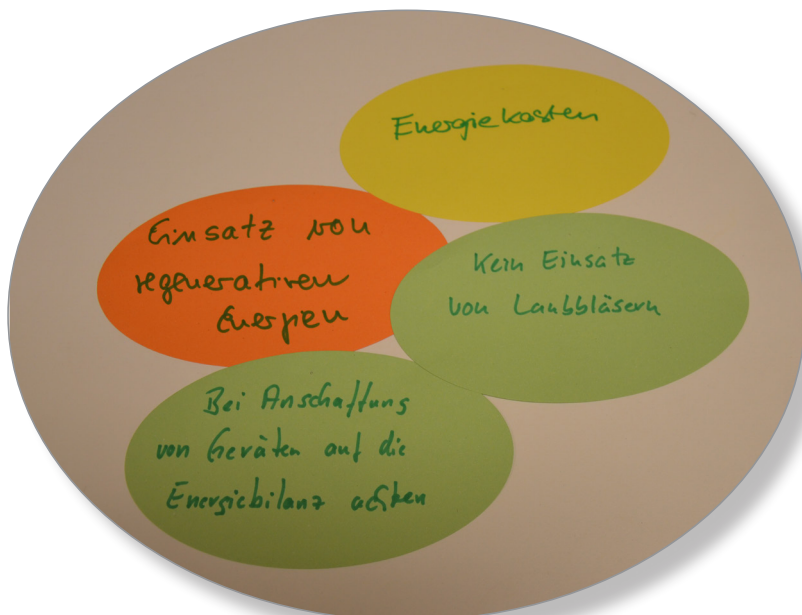 Energiekosten
Einsatz von
regenerativen
Energien
Kein Einsatz
von Laubbläsern
Bei Anschaffung
von Geräten auf die
Energiebilanz achten